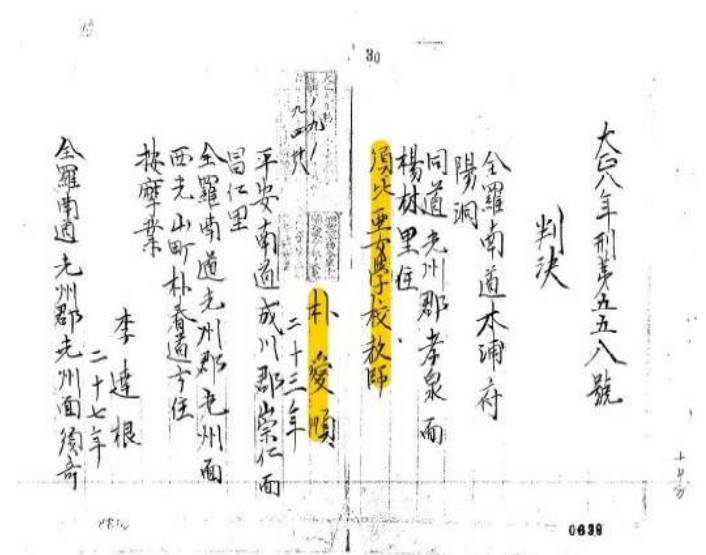 30
大正八年刑第五五八號
判決
全羅南道木浦府
陽洞
同道光州郡孝泉面
楊林里住
須比亜女學校教師
朴愛順
二十三年
平安南道成川郡崇仁面
昌仁里
全羅南道光州郡光州面
西光山町朴春道方住
按摩業
李達根
二十七年
全羅南道光州郡光州面須奇
0638